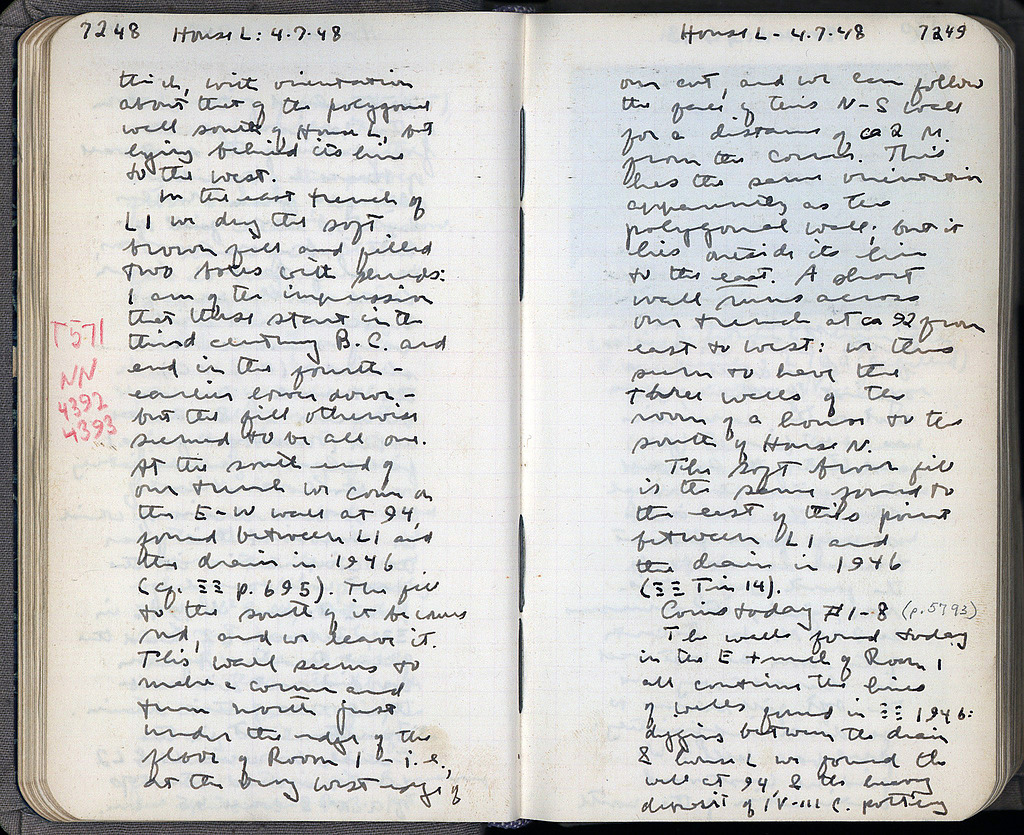 7248 House L: 4.7.48
thick, with orientation
about that of the polygonal
wall south of House L, but
lying behind its line
to the west.
In the east trench of
L1 we dug the soft
brown fill and filled
two boxes with sherds:
I am of the impression
that these start in the
third century B.C. and
end in the fourth -
earlier lower down, -
but the fill otherwise
seemed to be all one.
At the south end of
our trench we come on
the E-W wall at 94,
found between L1 and
the drain in 1946
(cf. ΞΞ p. 695). The fill
to the south of it becomes
red, and we leave it.
This wall seems to
make a corner and
turn north just
under the edge of the
floor of Room 1 - i.e.,
at the very west edge of
T571
NN
4392
4393
House L - 4.7.48 7249
our cut, and we can follow
the face of this N-S wall
for a distance of ca 2 M.
from the corner. This
has the same orientation
apparently as the
polygonal wall; but it
lies outside its line
to the east. A short
wall runs across
our trench at ca 92 from
east to west: we thus
seem to have the
three walls of the
room of a house to the
south of House N.
The soft brown fill
is the same found to
the east of this point
between L1 and
the drain in 1946
(ΞΞ Tin 14).
Coins today #1-8 (p. 5793)
The walls found today
in the E trench of Room 1
all continue the lines
of walls found in ΞΞ 1946:
digging between the drain
& house L we found the
wall at 94, & the heavy
deposit of IV-III C. pottery